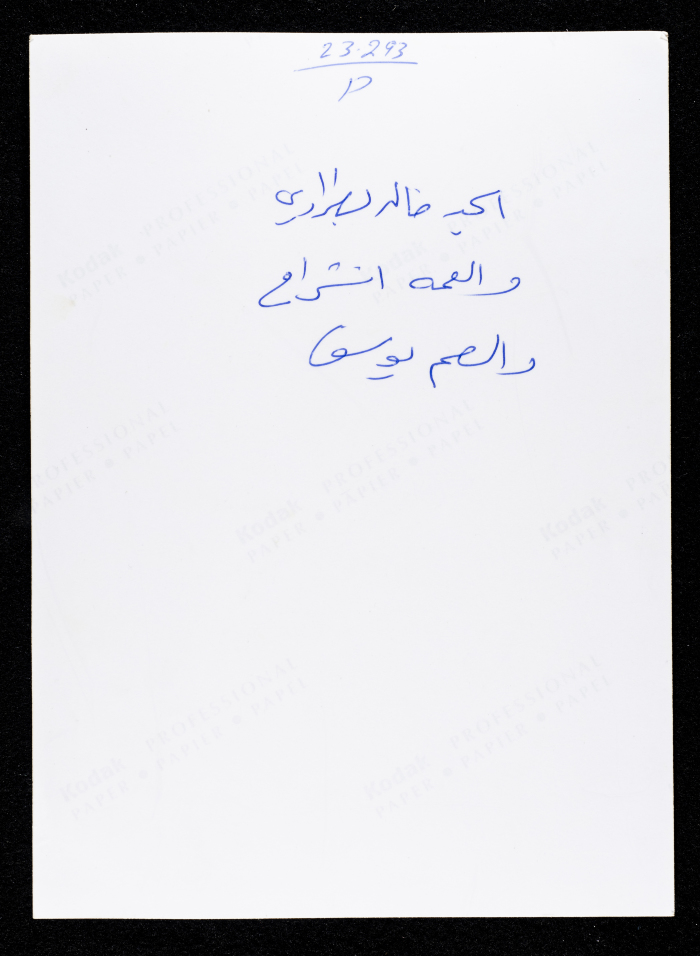 23.293
الجد خالد البطراوي
والعمه انشراح
والعم يوسف
Kodak PROFESSIONAL
PAPIER ◆ PAPEL